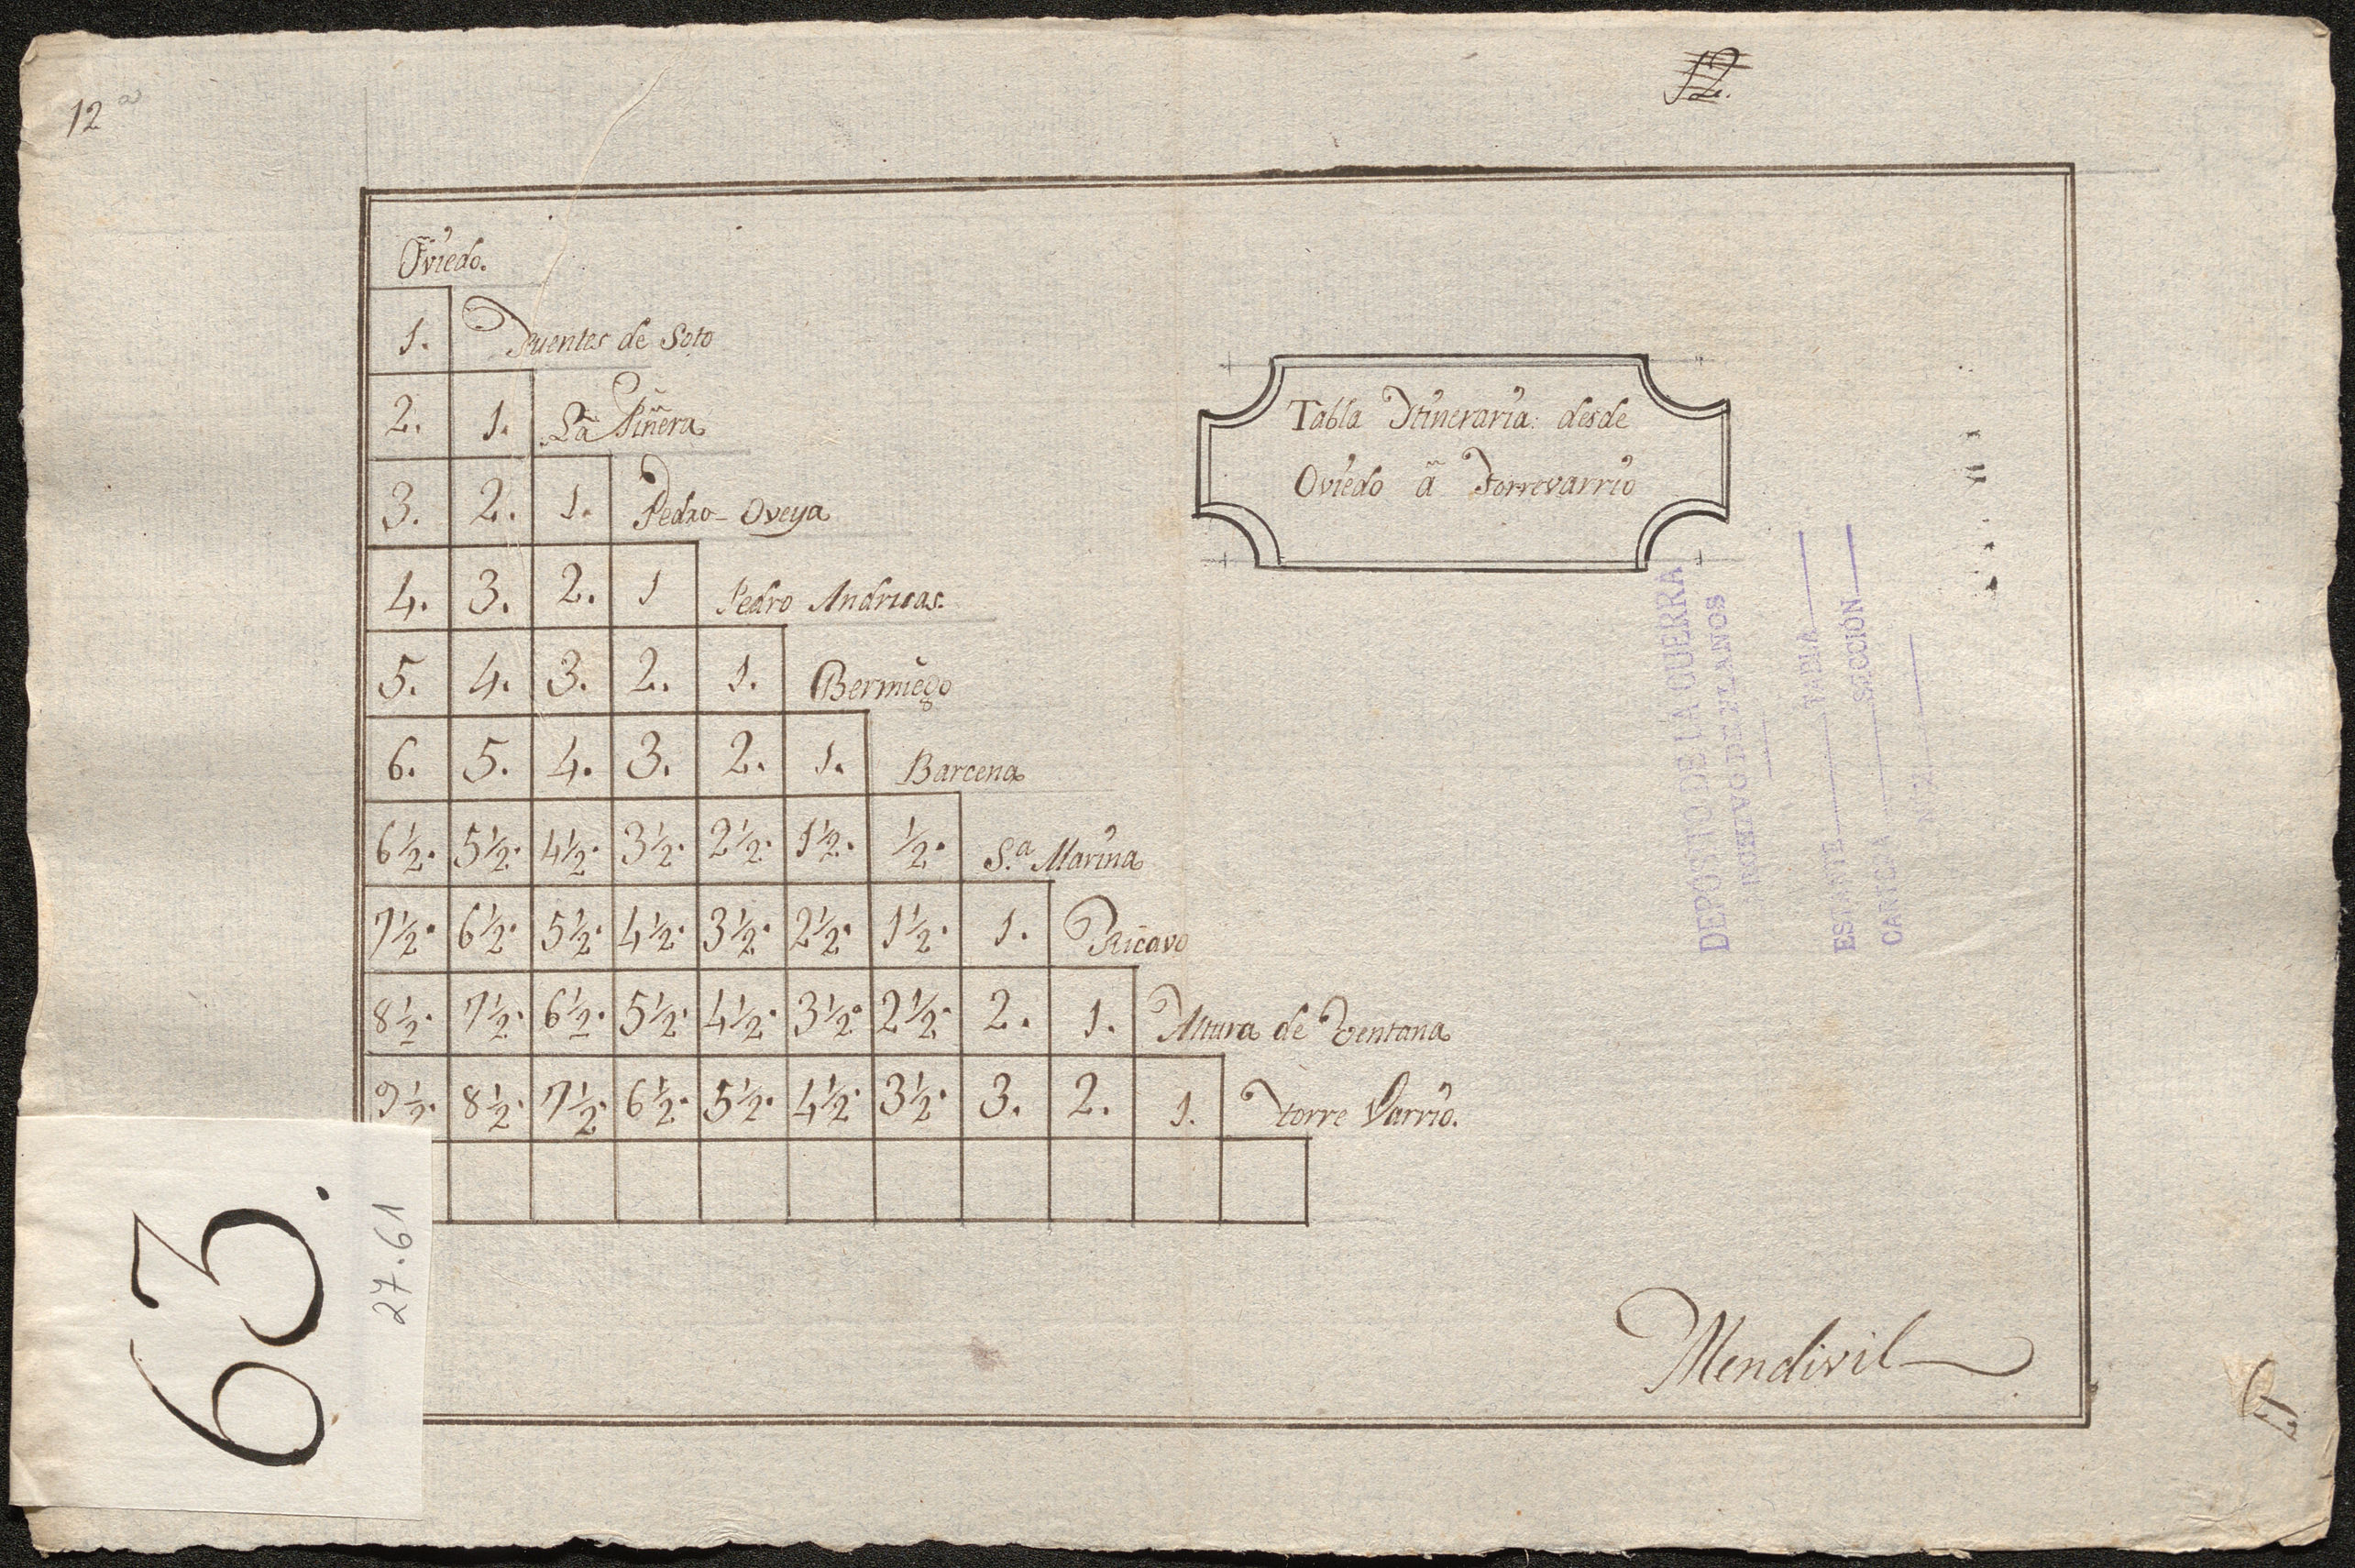 12ª
12.
Oviedo.
1. Puentes de Soto
2. 1. La Piñera
3. 2. 1. Pedro-Oveya
4. 3. 2. 1 Pedro Andricas.
5. 4. 3. 2. 1. Bermiego
6. 5. 4. 3. 2. 1. Barcena
6½. 5½. 4½. 3½. 2½. 1½. ½. S.ª Marina
7½. 6½. 5½. 4½. 3½. 2½. 1½. 1. Ricavo
8½. 7½. 6½. 5½. 4½. 3½. 2½. 2. 1. Altura de Ventana
9½. 8½. 7½. 6½. 5½. 4½. 3½. 3. 2. 1. torre Varrio.
Tabla Itineraria: desde
Oviedo â Torrevarrio
DEPÓSITO DE LA GUERRA
ARCHIVO DE PLANOS
ESTANTE TABLA
CARPETA SECCIÓN
Mendivil
63.
27.61